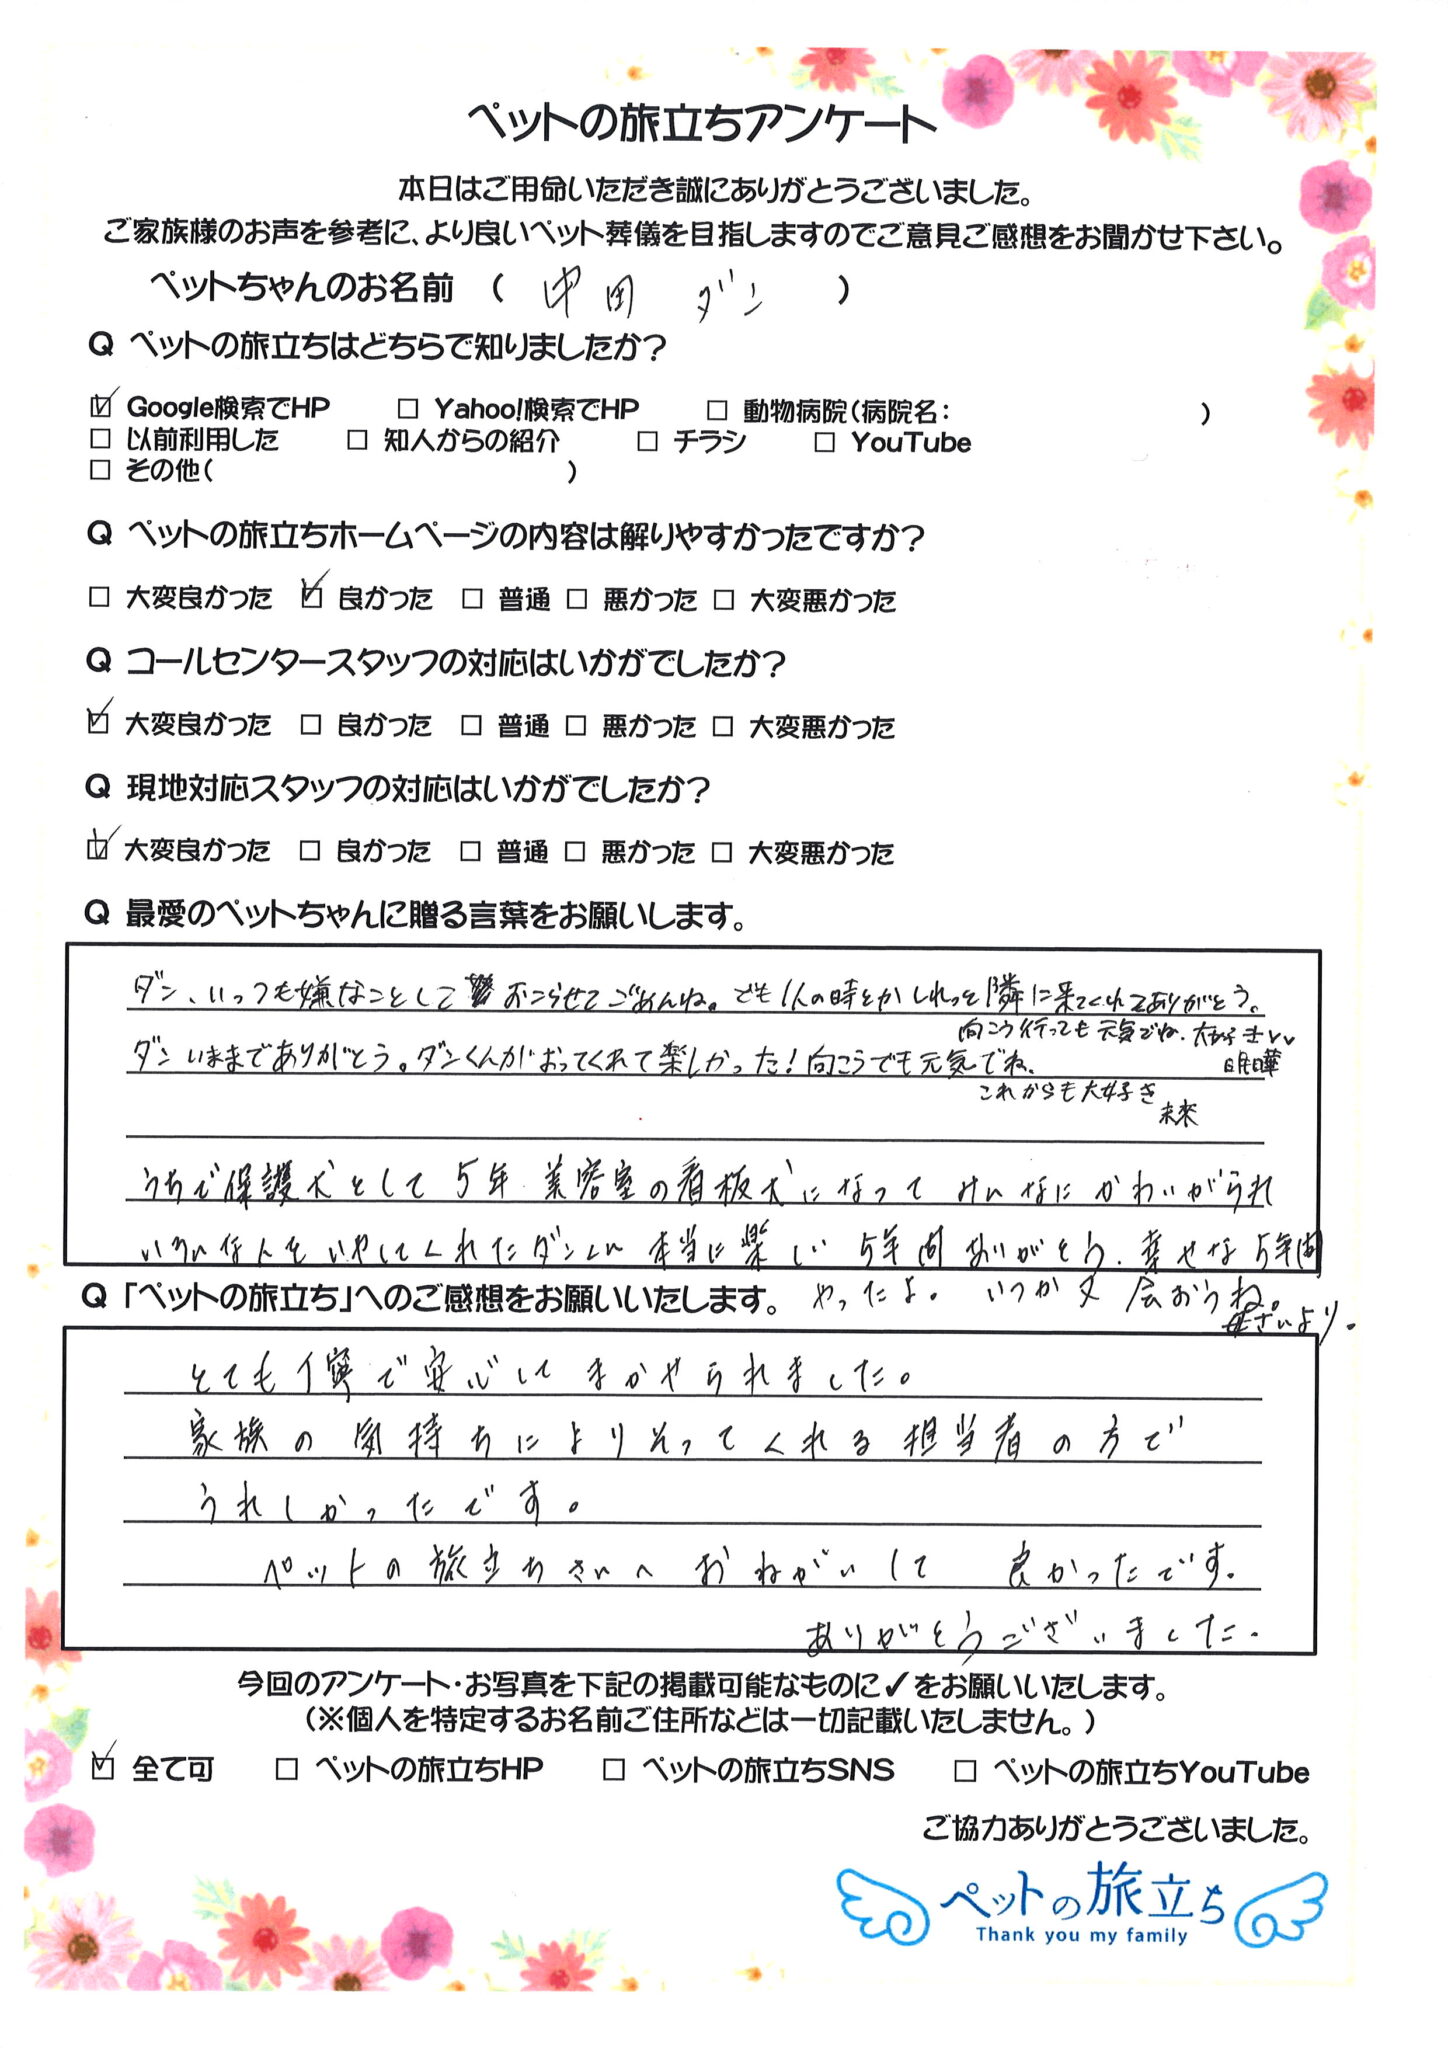 ペットの旅立ちアンケート
本日はご用命いただき誠にありがとうございました。
ご家族様のお声を参考に、より良いペット葬儀を目指しますのでご意見ご感想をお聞かせ下さい。
ペットちゃんのお名前 ( 中田 ダン )
Q ペットの旅立ちはどちらで知りましたか?
☑ Google検索でHP □ Yahoo!検索でHP □ 動物病院(病院名: )
□ 以前利用した □ 知人からの紹介 □ チラシ □ YouTube
□ その他( )
Q ペットの旅立ちホームページの内容は解りやすかったですか?
□ 大変良かった ☑ 良かった □ 普通 □ 悪かった □ 大変悪かった
Q コールセンタースタッフの対応はいかがでしたか?
☑ 大変良かった □ 良かった □ 普通 □ 悪かった □ 大変悪かった
Q 現地対応スタッフの対応はいかがでしたか?
☑ 大変良かった □ 良かった □ 普通 □ 悪かった □ 大変悪かった
Q 最愛のペットちゃんに贈る言葉をお願いします。
ダン、いつも嫌なことして おこらせてごめんね。でも1人の時とかしれっと隣に来てくれてありがとう。
向こう行っても元気でね、大好き♡♡
ダンいままでありがとう。ダンくんがおってくれて楽しかった!向こうでも元気でね、
これからも大好き
未來
うちで保護犬として5年 美容室の看板犬になって みんなにかわいがられ
いろんな人をいやしてくれたダンくん 本当に楽しい5年間ありがとう、幸せな5年間
やったよ。 いつか又 会おうね。
母さんより。
Q 「ペットの旅立ち」へのご感想をお願いいたします。
とても丁寧で安心してまかせられました。
家族の気持ちによりそってくれる担当者の方で
うれしかったです。
ペットの旅立ちさんへ おねがいして 良かったです。
ありがとうございました。
今回のアンケート・お写真を下記の掲載可能なものに✓をお願いいたします。
(※個人を特定するお名前ご住所などは一切記載いたしません。)
☑ 全て可 □ ペットの旅立ちHP □ ペットの旅立ちSNS □ ペットの旅立ちYouTube
ご協力ありがとうございました。
ペットの旅立ち
Thank you my family